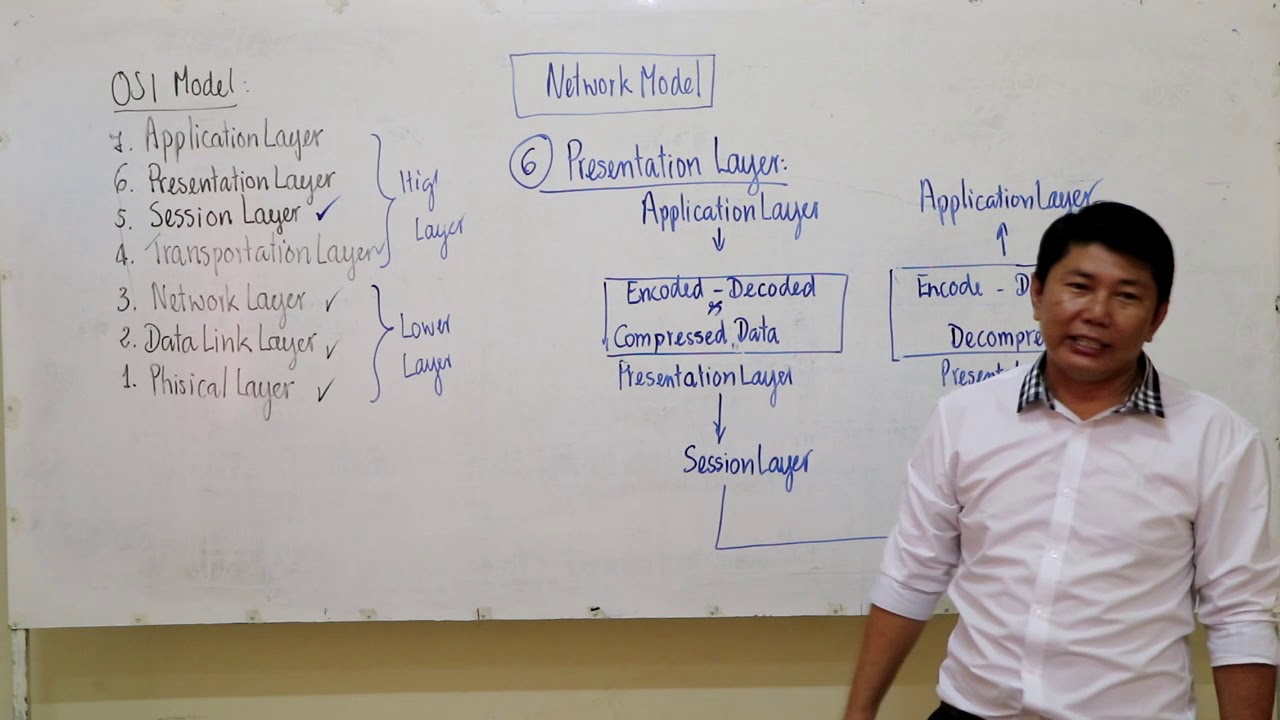 OSI Model:
7. Application Layer
6. Presentation Layer
5. Session Layer ✓
4. Transportation Layer
3. Network Layer ✓
2. Data Link Layer ✓
1. Phisical Layer ✓
High
Layer
Lower
Layer
Network Model
6 Presentation Layer:
Application Layer
↓
Encoded - Decoded
&
Compressed Data
Presentation Layer
↓
Session Layer
Application Layer
↑
Encode - D
Decompre
Present